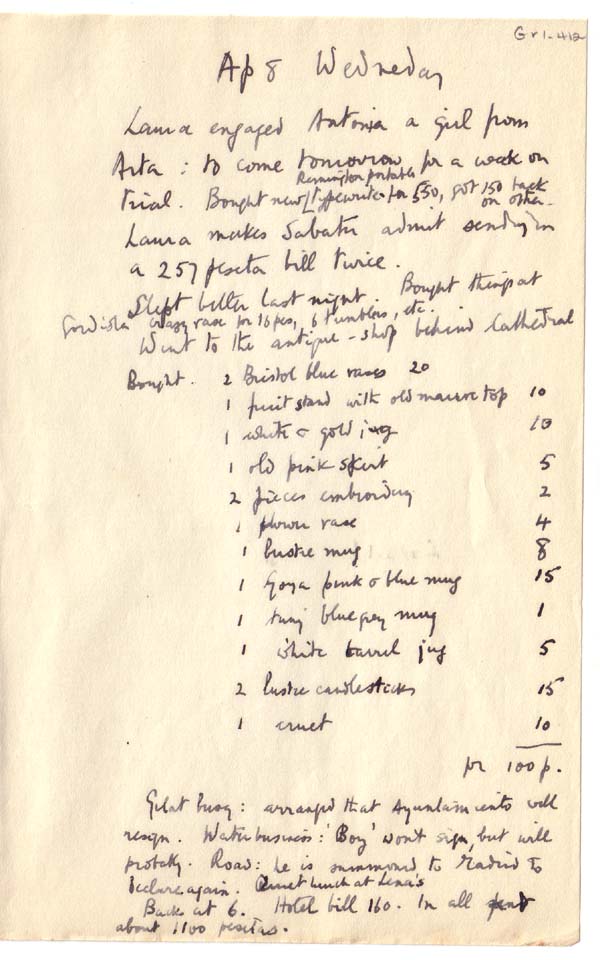 Gr1-412
Ap 8 Wednesday
Laura engaged Antonia a girl from
Arta : to come tomorrow for a week on
Remington portable
trial. Bought new typewriter for 550, got 150 back
on other.
Laura makes Sabater admit sending in
a 257 peseta bill twice.
Slept better last night. Bought things at
Gordiola vase for 16 pes, 6 tumblers, etc.
Went to the antique-shop behind Cathedral
Bought. 2 Bristol blue vases 20
1 fruit stand with old mauve top 10
1 white & gold jug 10
1 old pink skirt 5
2 pieces embroidery 2
1 flower vase 4
1 lustre mug 8
1 Goya pink & blue mug 15
1 tiny blue grey mug 1
1 white barrel jug 5
2 lustre candlesticks 15
1 cruet 10
for 100 p.
Gelat busy : arranged that Ayuntamiento will
resign. Water business : 'Boy' won't sign, but will
probably. Road : he is summoned to Madrid to
declare again. Quiet lunch at Lena's
Back at 6. Hotel bill 160. In all spent
about 1100 pesetas.